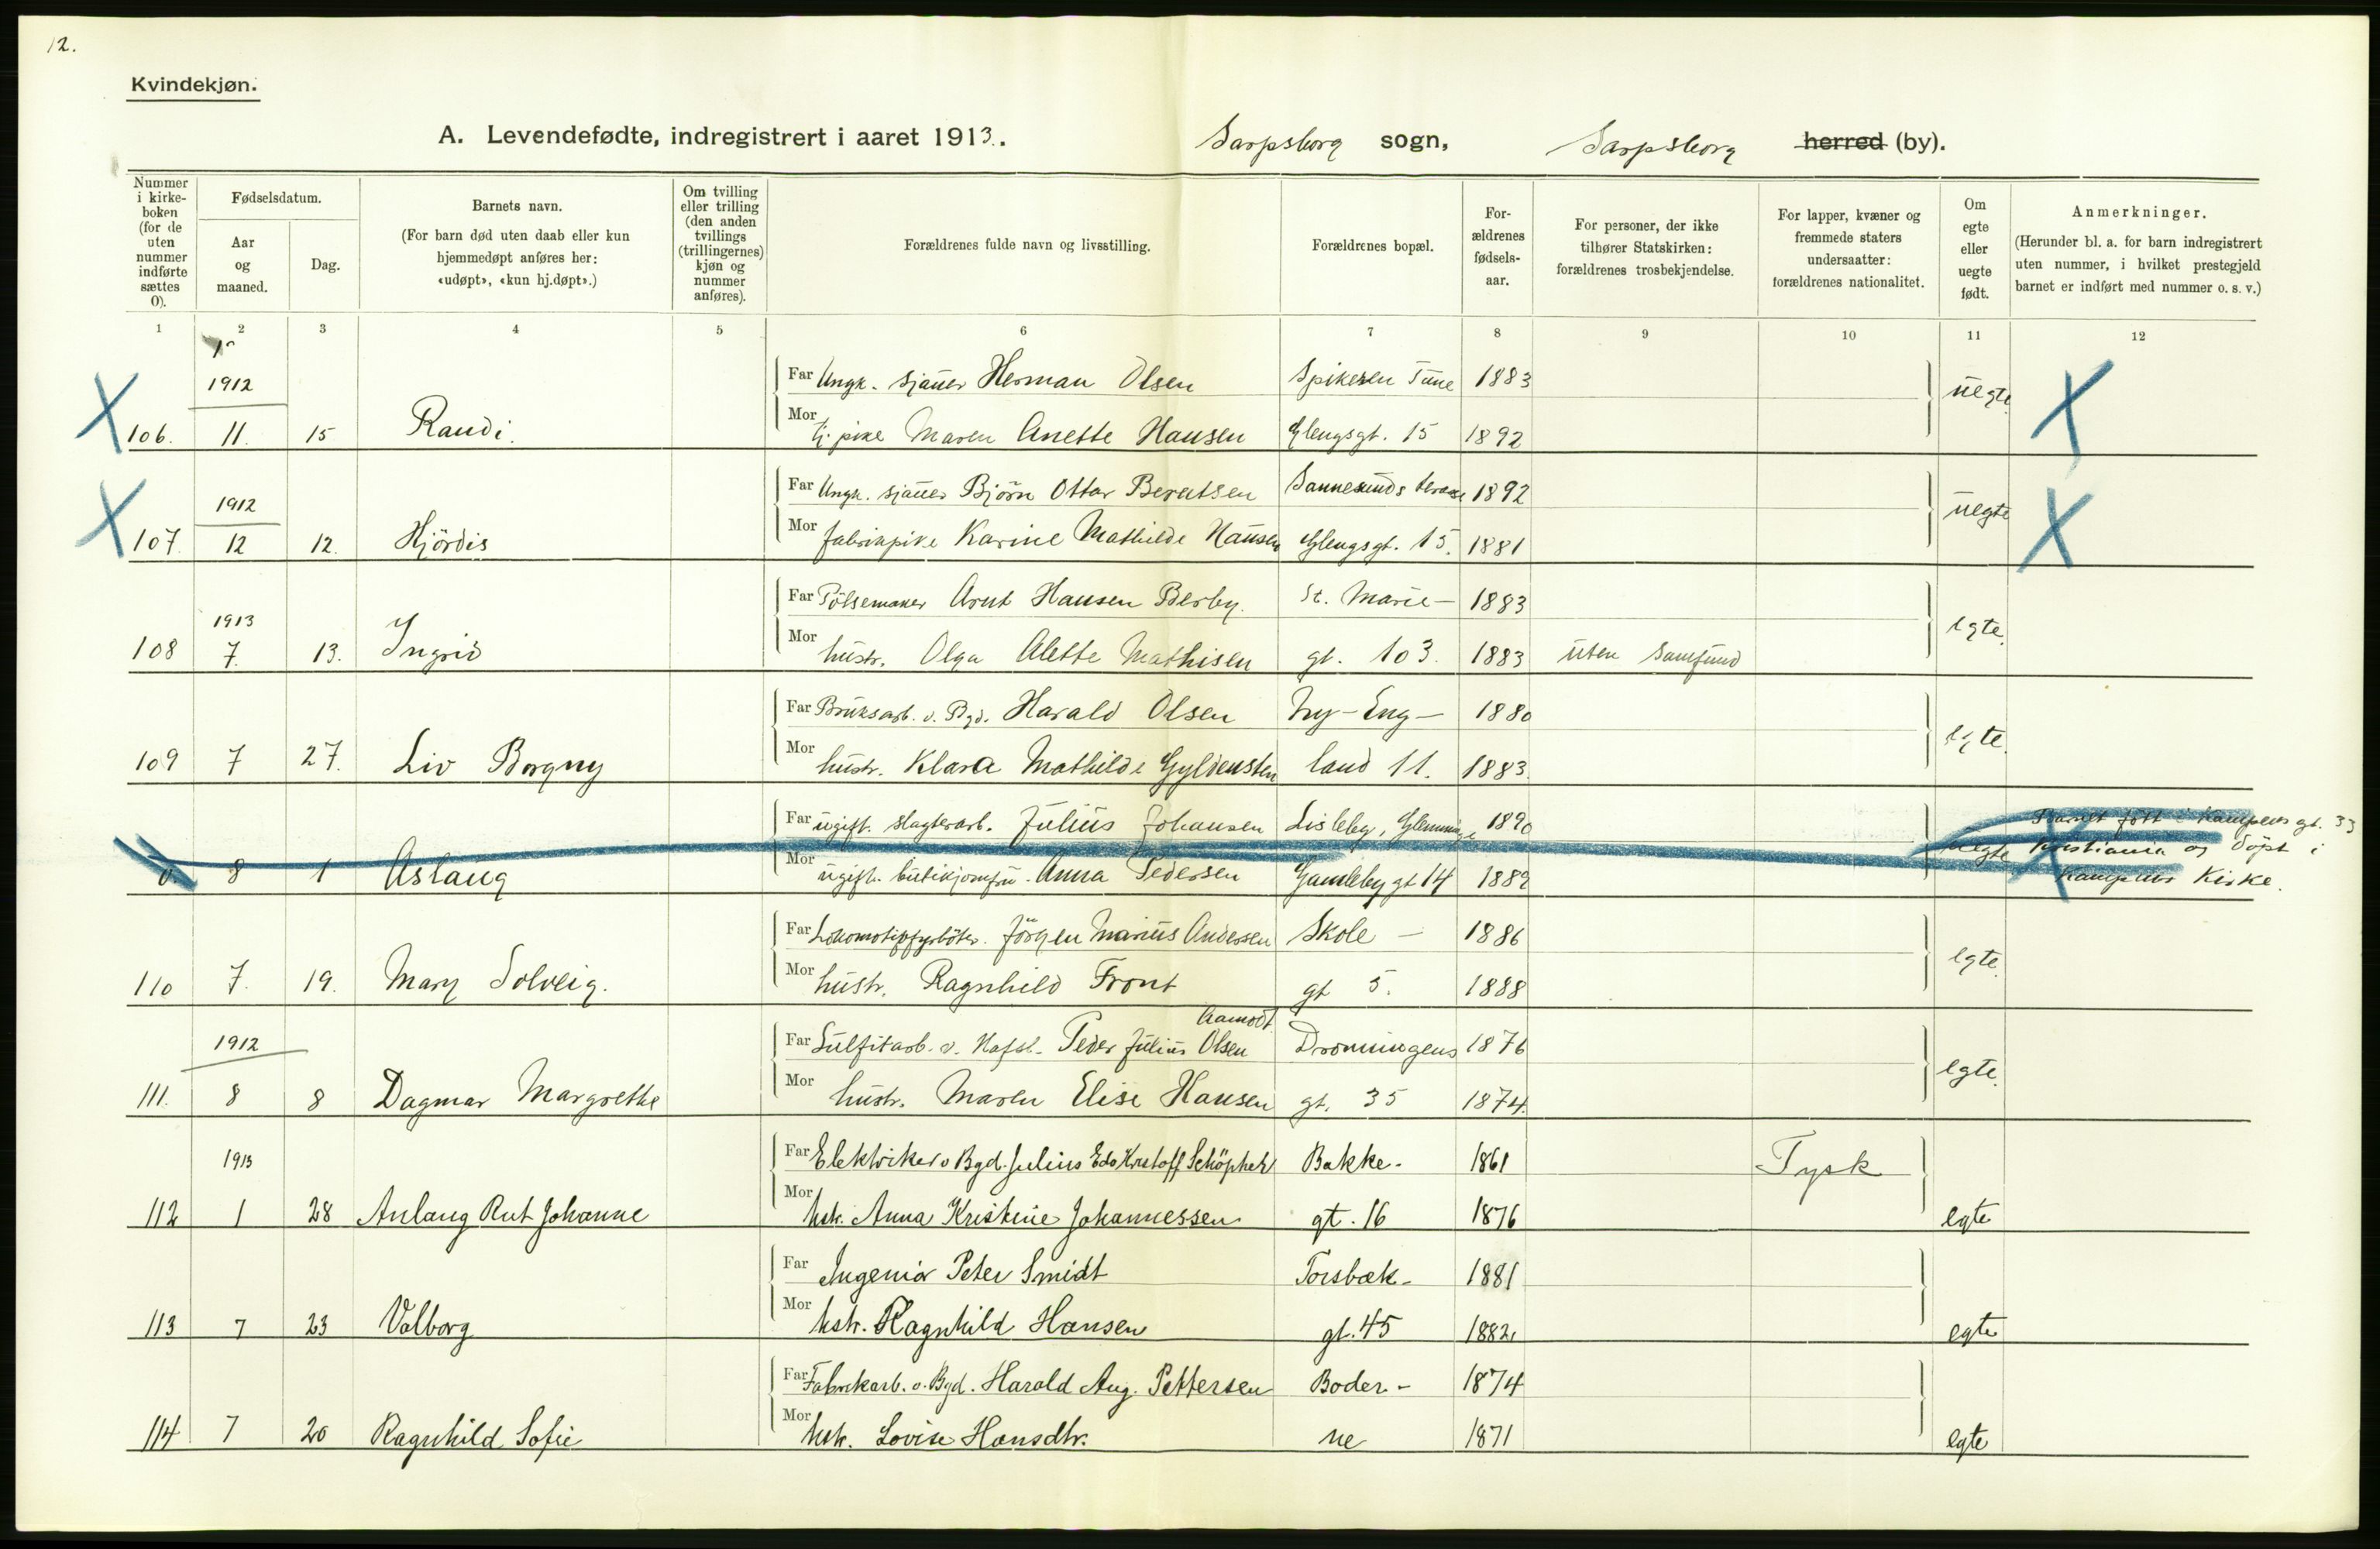 12.
Kvindekjøn.
A. Levendefødte, indregistrert i aaret 1913. Sarpsborg sogn, Sarpsborg herred (by).
Nummer i kirke-boken (for de uten nummer indførte sættes 0).
Fødselsdatum.
Aar og maaned.
Dag.
Barnets navn.
(For barn død uten daab eller kun hjemmedøpt anføres her: «udøpt», «kun hj.døpt».)
Om tvilling eller trilling (den anden tvillings (trillingernes) kjøn og nummer anføres).
Forældrenes fulde navn og livsstilling.
Forældrenes bopæl.
For-ældrenes fødsels-aar.
For personer, der ikke tilhører Statskirken: forældrenes trosbekjendelse.
For lapper, kvæner og fremmede staters undersaatter: forældrenes nationalitet.
Om egte eller uegte født.
Anmerkninger.
(Herunder bl. a. for barn indregistrert uten nummer, i hvilket prestegjeld barnet er indført med nummer o. s. v.)
1 2 3 4 5 6 7 8 9 10 11 12
1912 Far Ungk. sjauer Herman Olsen Spikeren Tune 1883 uegte
106. 11. 15 Raudi. Mor tj. pike Maren Anette Hansen Glengsgt. 15 1892
1912 Far Ungk. sjauer Bjørn Ottar Berntsen Sannesunds terasse 1892 uegte
107. 12 12. Hjördis Mor fabrikpike Karine Mathilde Hansen Glengsgt. 15. 1881
1913 Far Pölsemaker Arnt Hansen Berby. St. Marie- 1883 egte.
108 7. 13. Ingrid Mor hustr. Olga Alette Mathisen gt. 103. 1883 uten samfund
Far Bruksarb. v. Bgd. Harald Olsen Ny-Eng- 1880 egte.
109 7 27. Liv Borgny Mor hustr. Klara Mathilde Gyldensten land 11. 1883.
Far ugift. slagterarb. Julius Johansen Lisleby, Glemminge 1890 uegte Barnet født i Kampens gt. 33 Kristiania og döpt i Kampens Kirke.
0. 8 1 Aslaug Mor ugift. butikjomfru. Anna Pedersen Gamleby gt 14 1889
Far Lokomotivfyrböter. Jörgen Marius Andersen Skole- 1886 egte.
110 7. 19. Mary Solveig. Mor hustr. Ragnhild Front gt 5. 1888
Aamodt
1912 Far Sulfitarb. v. Hafsl. Peder Julius Olsen Dronningens 1876 egte.
111. 8 8 Dagmar Margrethe Mor hustr. Maren Elise Hansen gt. 35 1874.
1913 Far Elektriker v Bgd. Julius Edv Kristoff Schöpher Bakke- 1861 Tysk
112 1 28 Aulaug Rut Johanne Mor hstr. Anna Kristine Johannessen gt. 16 1876 egte
Far Ingeniør Peter Smidt Torsbæk- 1881
113 7 23 Valborg Mor hstr. Ragnhild Hansen gt. 45 1882 egte
Far Fabrikarb. v. Bgd. Harald Aug. Pettersen Boder- 1874
114 7 20 Ragnhild Sofie Mor hstr. Lovise Hansdtr. ne 1871 egte